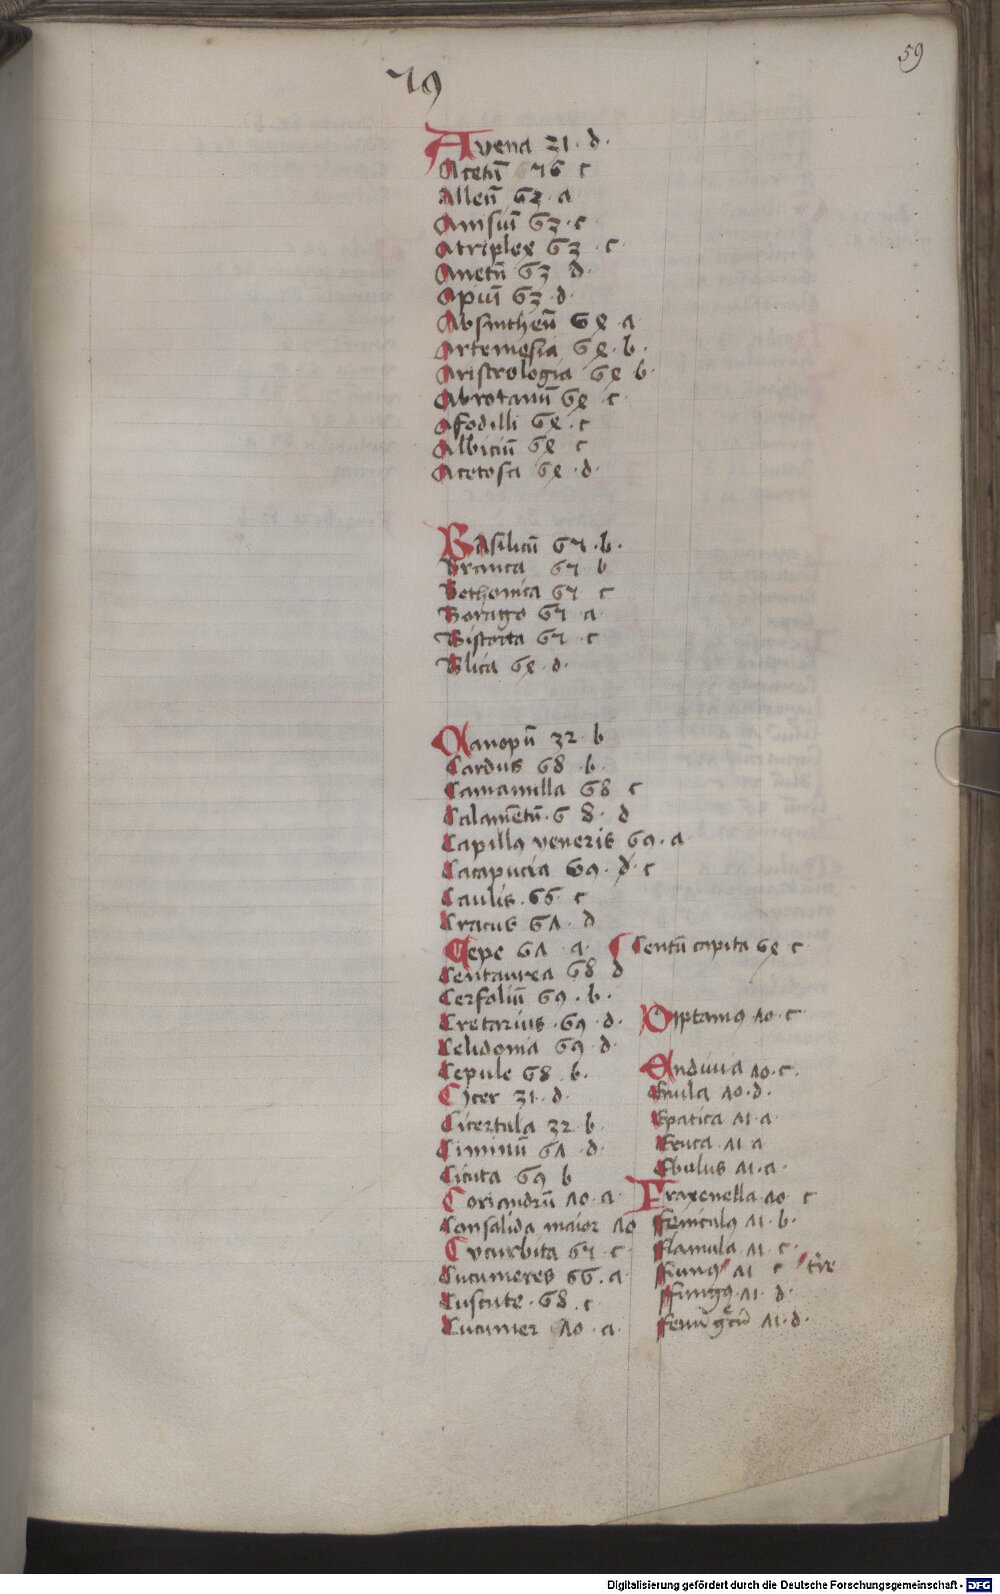 59
79
Avena 31. d.
Acetū 76 c
Alleū 62. a
Anisuī 63. c
Atriplex 63. c
Anetū 63 d.
Apiuī 63. d.
Absintheū 64. a
Artemesia 64. b.
Aristrologia 64 b.
Abrotanū 64 c
Afodilli 64. c
Albiciū 64 c
Acetosa 64. d.
Basilicū 67. b.
Branca 67 b
Bethonica 67 c
Borago 67 a
Bistorta 67. c
Blica 64. d.
Canopū 32 b
Cardus 68. b.
Camamilla 68 c
Calamētū. 68. d
Capillꝰ veneris 69. a
Catapucia 69. d. c
Caulis. 66. c
Cracus 6Λ. d
Cepe 6Λ a.
Centaurea 68 d
Cerfoliū 69. b.
Cretarius. 69. d.
Celidonia 69. d.
Cepule 68. b.
Cycer 31. d.
Cicertula 32. b.
Ciminū 6Λ. d.
Cicuta 69 b
Coriandrū Λ0. a.
Consalida maior Λ0
Cucurbita 67. c.
Cucumeres 66. a.
Cuscute. 68. c
Cucumer Λ0. a.
Centū capita 64 c
Diptamꝰ Λ0. c
Endiuia Λ0. c.
Enula Λ0. d.
Epatica Λ1. a.
Eruca Λ1 a
Ebulus Λ1. a.
Fraxenella Λ0 c
Feniculꝰ Λ1. b.
Flamula Λ1 c.
Fumꝰ Λ1 c t're
Fungꝰ Λ1 d.
Fenū gͤcū Λ1. d.
Digitalisierung gefördert durch die Deutsche Forschungsgemeinschaft - DFG